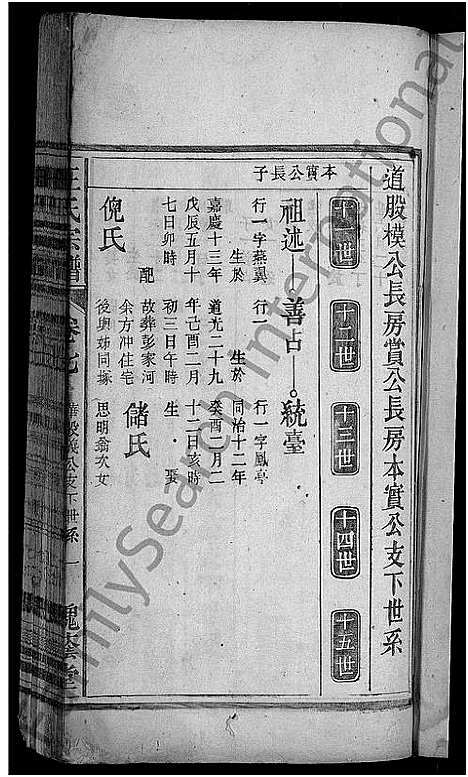 道股模公長房賞公長房本實公支下世系
十一世 十二世 十三世 十四世 十五世
本實公長子
祖述
善占
統臺
行一字燕翼
生於
嘉慶十三年
戊辰五月十
七日卯時
配
倪氏
行一
生於
道光二十九
年己酉二月
初三日午時
故葬彭家河
余方冲住宅
後與姊同塚
行一字鳳亭
同治十二年
癸酉二月二
十二日亥時
生
娶
儲氏
思明翁次女
王氏宗譜
卷七
槐蔭堂
FamilySearch International